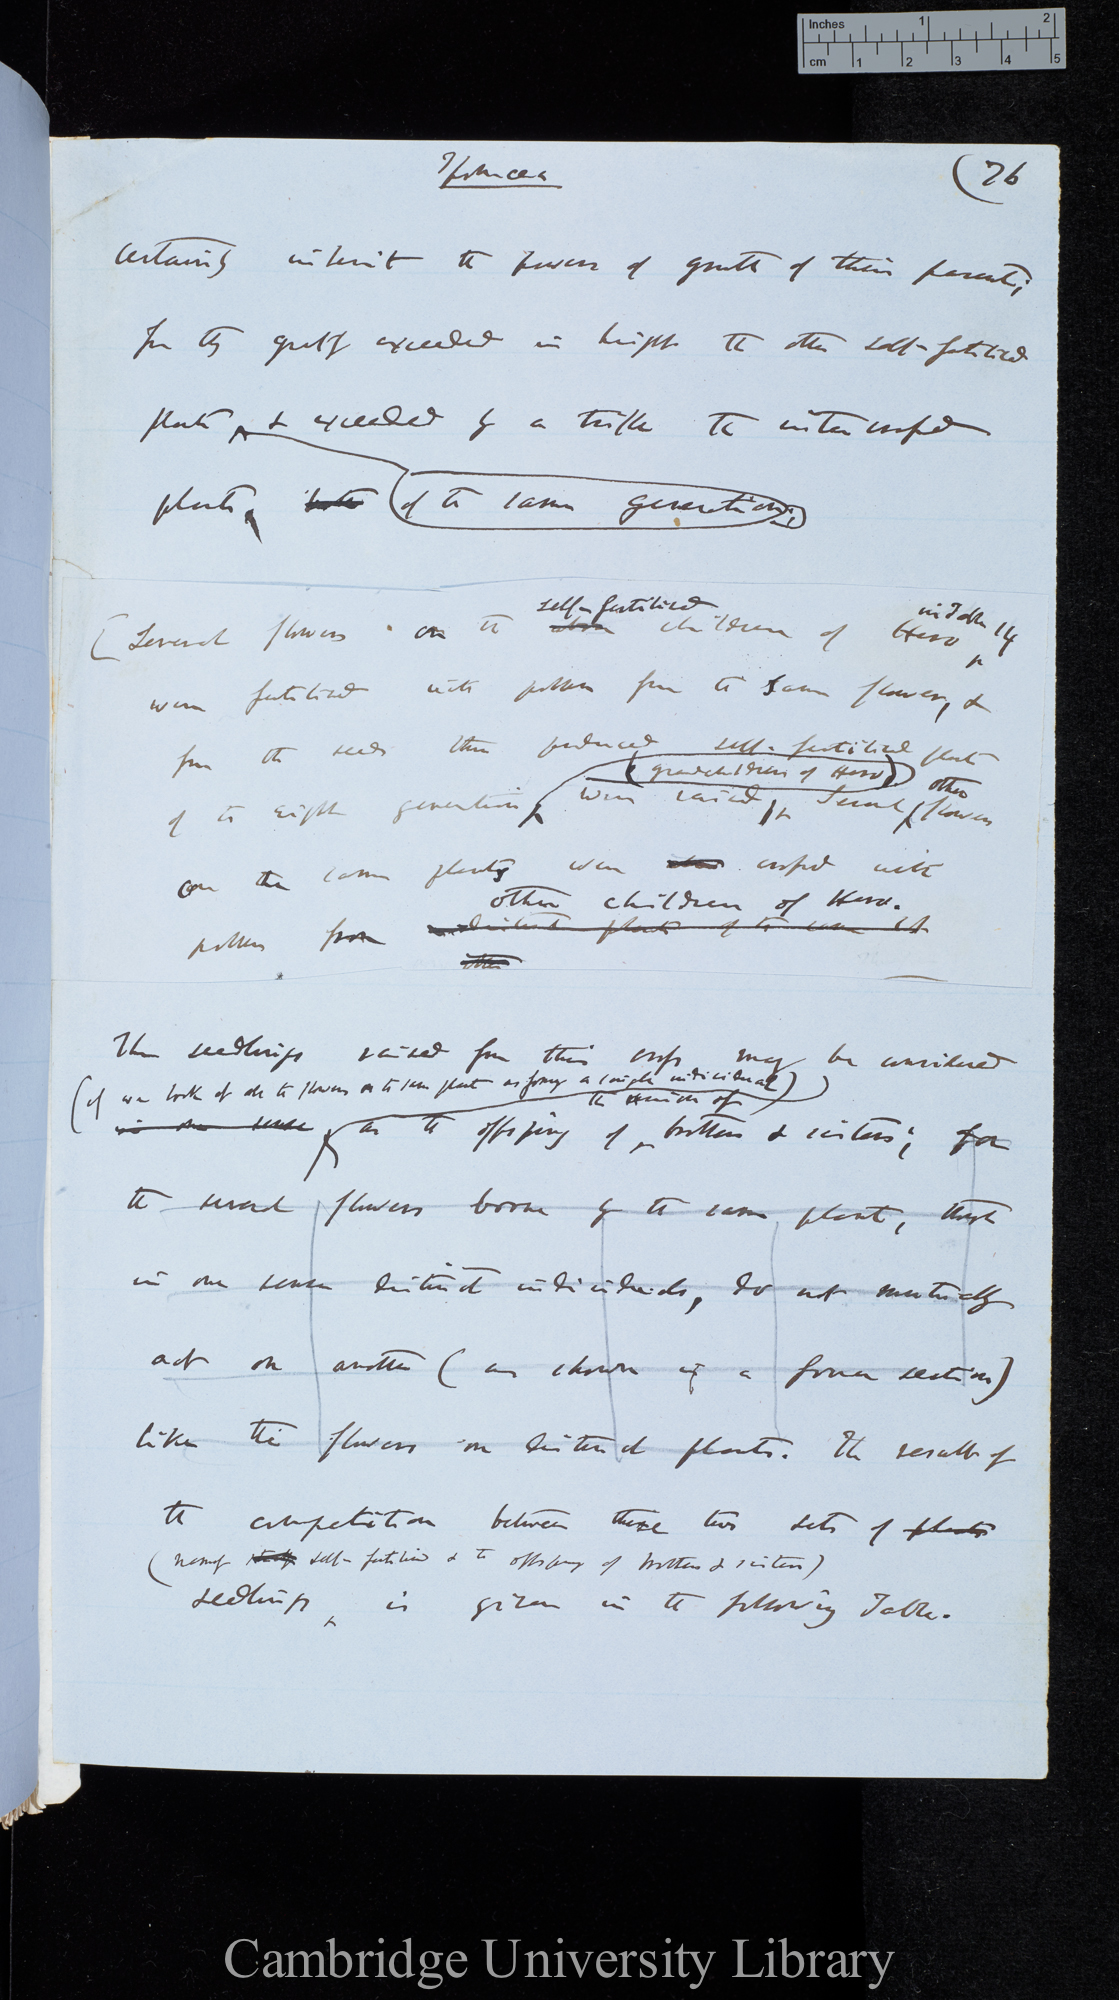 Inches 1 2
cm 1 2 3 4 5
Ipomœa
(76
certainly inherit the powers of growth of their parents;
for they greatly exceeded in height the other self-fertilised
plants, & exceeded by a trifle the intercrossed
plants, both of the same generation;
self-fertilised
in Table 14
[Several flowers on the children of Hero
were fertilised with pollen from the same flower, &
from the seeds thus produced self-fertilised plants
(grandchildren of Hero) other
of the eighth generation, were raised, Several flowers
on the same plants were crossed with
other children of Hero.
pollen from distinct plants of the same lot
other
The seedlings raised from this cross may be considered
(if we look at all the flowers on the same plant as forming a single individual)
the union of
in one sense, as the offspring of brothers & sisters; for
the several flowers borne by the same plant, though
in one sense distinct individuals, do not mutually
act on another (as shown in a former section)
like the flowers on distinct plants. The result of
the competition between these two sets of plants
(namely self-fertilised & the offspring of brothers & sisters)
seedlings, is given in the following Table.
Cambridge University Library